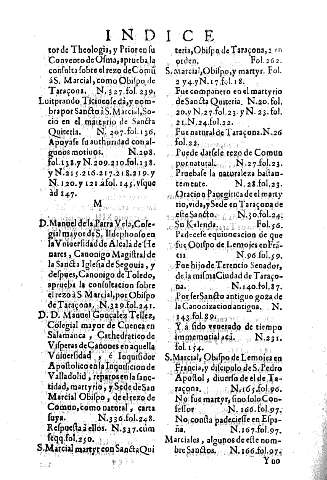 INDICE
tor de Theologia, y Prior en su
Convento de Osma, aprueba la
consulta sobre el rezo de Comũ
â S. Marcial, como Obispo de
Taraçona. N. 327. fol. 239.
Luitprando Ticinense dâ, y nom-
bra por Sancto â S. Marcial, So-
cio en el martyrio de Sancta
Quiteria. N. 207. fol. 136.
Apoyase su authoridad con al-
gunos motivos. N. 208.
fol. 138. y N. 209. 210. fol. 138.
y N. 215. 216. 217. 218. 219. y
N. 120. y 121 â fol. 145. vsque
ad 147.
M
D. Manuel de la Parra Vela, Cole-
gial mayor de S. Ildephonso en
la Vniversidad de Alcala de He-
nares, Canonigo Magistral de
la Sancta Iglesia de Segouia, y
despues, Canonigo de Toledo,
aprueba la consultacion sobre
el rezo â S. Marcial, por Obispo
de Taraçona. N. 329. fol. 241.
D. D. Manuel Gonçalez Tellez,
Colegial mayor de Cuenca en
Salamanca, Cathedratico de
Visperas de Canones en aquella
Vniversidad, ê Inquisidor
Apostolico en la Inquisicion de
Valladolid, reparos en la sanc-
tidad, martyrio, y Sede de San
Marcial Obispo, de el rezo de
Comun, como natural, carta
suya. N. 336. fol. 248.
Respuesta â ellos. N. 337. cum
seqq. fol. 250.
S. Marcial martyr con Sancta Qui
teria, Obispo de Taraçona, 2 en
orden. Fol. 262.
S. Marcial, Obispo, y martyr. Fol.
2. y 4. y N. 17. fol. 18.
Fue companero en el martyrio
de Sancta Quiteria. N. 20. fol.
20. y N. 27. fol. 23. y N. 23. fol.
21. N. 24. fol. 22.
Fue natural de Taraçona. N. 26
fol. 22.
Puede darsele rezo de Comun
por natural. N. 27. fol. 23.
Pruebase la naturaleza bastan-
temente. N. 28. fol. 23.
Oracion Panegirica de el marty
rio, vida, y Sede en Taraçona de
este Sancto. N. 50. fol. 24.
Su Kalenda. Fol. 56.
Padecese equivocacion de que
fue Obispo de Lemojes en Frã
cia N. 96. fol. 59.
Fue hijo de Terencio Senador,
de la misma Ciudad de Taraço-
na. N. 140. fol. 87.
Por ser Sancto antiguo goza de
la Canonizacion antigua. N.
143. fol. 89.
Y a sido venerado de tiempo
immemorial acâ. N. 231.
fol. 154.
S. Marcial, Obispo de Lemojes en
Francia, y discipulo de S. Pedro
Apostol, diverso de el de Ta-
raçona. N. 165. fol. 96.
No fue martyr, sino solo Con-
fessor N. 166. fol. 97.
No consta padeciesse en Espa-
ña. N. 167. fol. 97.
Marciales, algunos de este nom-
bre Sanctos. N. 166. fol. 97.
Y no